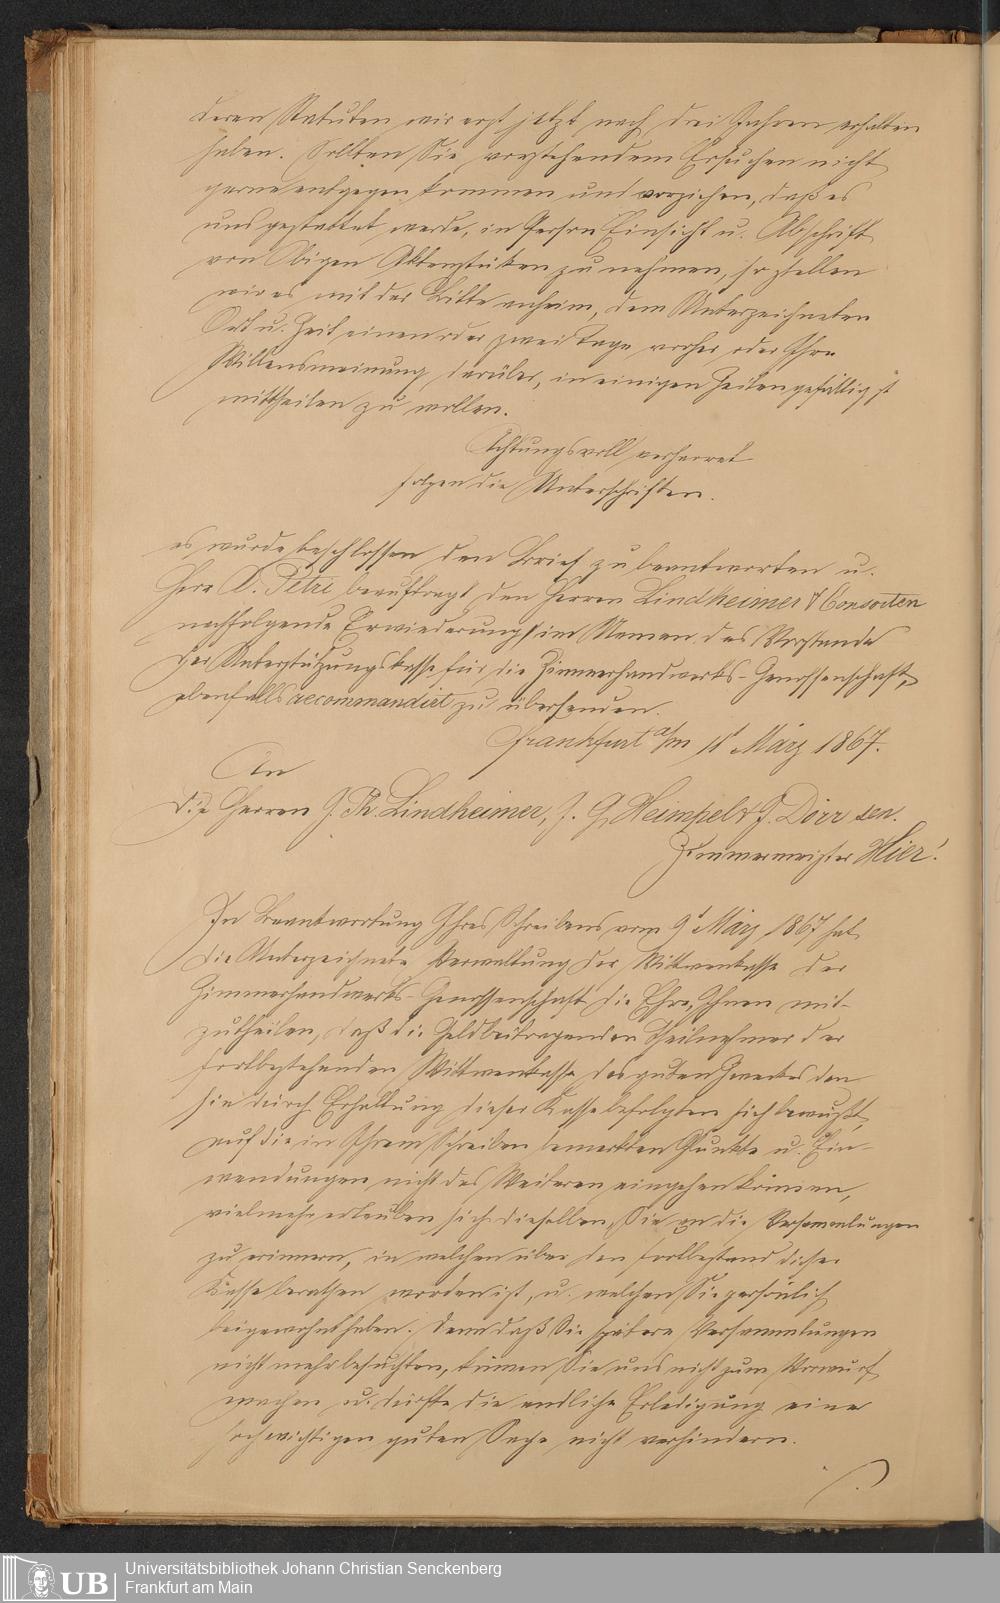 deren Statuten wir erst jetzt nach drei Jahren erhalten
haben. Sollten Sie vorstehendem Ersuchen nicht
gerne entgegen kommen und vorziehen, daß es
uns gestattet werde, in Person Einsicht u. Abschrift
von Obigen Aktenstüken zu nehmen, so stellen
wir es mit der Bitte anheim, dem Unterzeichneten
Ort u. Zeit einen oder zwei Tage vorher oder Ihre
Willensmeinung darüber, in einigen Zeilen gefälligst
mittheilen zu wollen.
Achtungsvoll verharret
folgen die Unterschriften.
es wurde beschlossen den Brief zu beantworten u.
Herr A. Petri beauftragt den Herren Lindheimer & Consorten
nachfolgende Erwiederung im Namen des Vorstands
der Unterstützungskasse für die Zimmerhandwerks-Genossenschaft,
ebenfalls recommandiet zu übersenden.
Frankfurt a/m 11t März 1867.
An
die Herren J. Th. Lindheimer, J. G. Heimpel & J. Dörr sen.
Zimmermeister Hier!
In Beantwortung Ihres Schreibens vom 9t März 1867 hat
die Unterzeichnete Verwaltung der Wittwenkasse der
Zimmerhandwerks-Genossenschaft die Ehre, Ihnen mit-
zutheilen, daß die Geldbeitragenden Theilnehmer der
fortbestehenden Wittwenkasse des guten Zweckes den
sie durch Erhaltung dieser Kasse befolgten sich bewußt,
auf die in Ihrem Schreiben bemerkten Punkte u. Ein-
wendungen nicht des Weiteren eingehen können,
vielmehr erlauben sich dieselben, Sie an die Versammlungen
zu erinnern, in welchen über den Fortbestand dieser
Kasse berathen worden ist, u. welchen Sie persönlich
beigewohnt haben. Denn daß Sie spätere Versammlungen
nicht mehr besuchten, können Sie uns nicht zum Vorwurf
machen u. dürfte die endliche Erledigung einer
hochwichtigen guten Sache nicht verhindern.
UB
Universitätsbibliothek Johann Christian Senckenberg
Frankfurt am Main